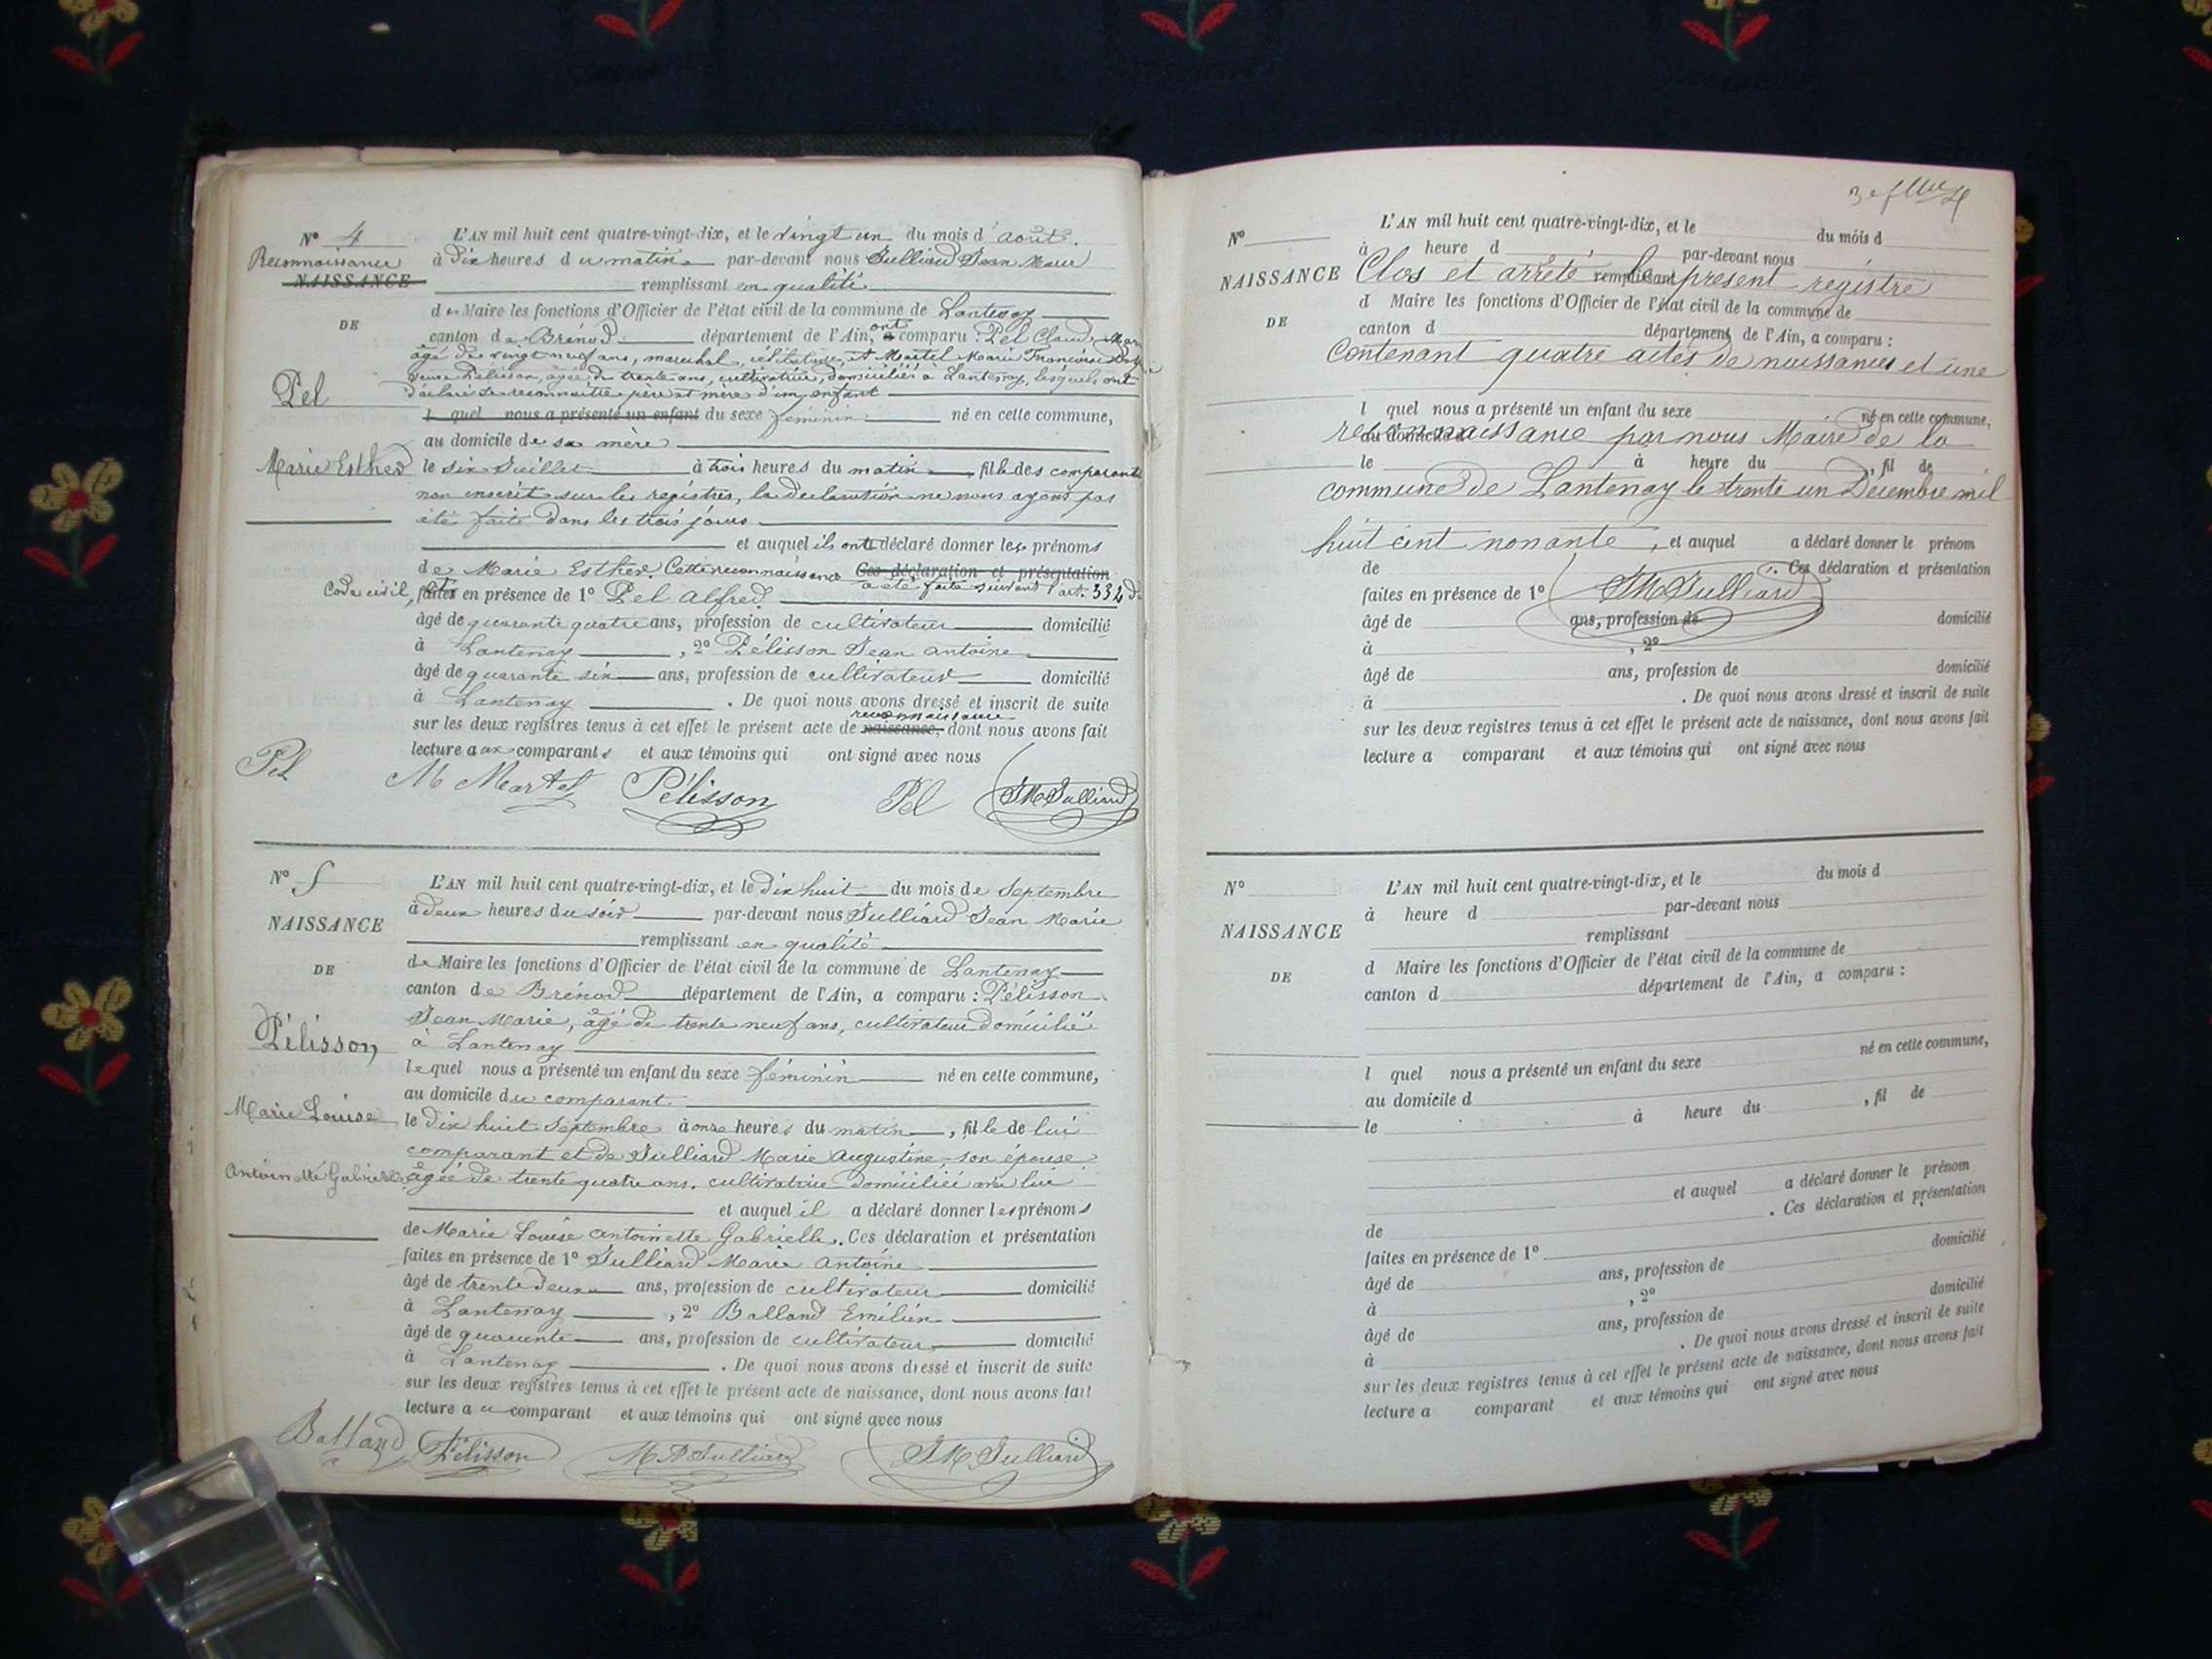 N° 4
Reconnaissance
NAISSANCE
DE
Pel
Marie Esther
L'AN mil huit cent quatre-vingt-dix, et le vingt un du mois d'août.
à dix heures du matin par-devant nous Julliard Jean Marie
remplissant en qualité
de Maire les fonctions d'Officier de l'état civil de la commune de Lantenay
canton de Brénod département de l'Ain, ont comparu : Pel Claude
âgé de vingt neuf ans, maréchal, célibataire, et Martel Marie Françoise
veuve Pelisson, âgée de trente ans, cultivatrice, domiciliés à Lantenay, lesquels ont
déclaré se reconnaître père et mère d'un enfant
l quel nous a présenté un enfant du sexe féminin né en cette commune,
au domicile de sa mère
le six Juillet à trois heures du matin fille des comparants
non inscrit sur les registres, la déclaration ne nous ayant pas
été faite dans les trois jours
et auquel ils ont déclaré donner les prénoms
de Marie Esther. Cette reconnaissance Ces déclaration et présentation
a été faite suivant l'art. 334 du
Code civil, faites en présence de 1° Pel Alfred
âgé de quarante quatre ans, profession de cultivateur domicilié
à Lantenay, 2° Pélisson Jean Antoine
âgé de quarante six ans, profession de cultivateur domicilié
à Lantenay. De quoi nous avons dressé et inscrit de suite
reconnaissance
sur les deux registres tenus à cet effet le présent acte de naissance, dont nous avons fait
lecture aux comparants et aux témoins qui ont signé avec nous
Pel M Martel Pélisson Pel JM Julliard
N° 5
NAISSANCE
DE
Pélisson
Marie Louise
Antoinette Gabrielle
L'AN mil huit cent quatre-vingt-dix, et le dix huit du mois de Septembre
à deux heures du soir par-devant nous Julliard Jean Marie
remplissant en qualité
de Maire les fonctions d'Officier de l'état civil de la commune de Lantenay
canton de Brénod département de l'Ain, a comparu : Pélisson
Jean Marie, âgé de trente neuf ans, cultivateur domicilié
à Lantenay
lequel nous a présenté un enfant du sexe féminin né en cette commune,
au domicile du comparant
le dix huit Septembre à onze heures du matin, fille de lui
comparant et de Julliard Marie Augustine, son épouse
âgée de trente quatre ans, cultivatrice domiciliée avec lui
et auquel il a déclaré donner les prénoms
de Marie Louise Antoinette Gabrielle. Ces déclaration et présentation
faites en présence de 1° Julliard Marie Antoine
âgé de trente deux ans, profession de cultivateur domicilié
à Lantenay, 2° Balland Emilien
âgé de quarante ans, profession de cultivateur domicilié
à Lantenay. De quoi nous avons dressé et inscrit de suite
sur les deux registres tenus à cet effet le présent acte de naissance, dont nous avons fait
lecture au comparant et aux témoins qui ont signé avec nous
Balland Pélisson M A Julliard JM Julliard
N°
NAISSANCE
DE
L'AN mil huit cent quatre-vingt-dix, et le du mois d
à heure d par-devant nous
Clos et arrêté le présent registre
remplissant
d Maire les fonctions d'Officier de l'état civil de la commune de
canton d département de l'Ain, a comparu :
contenant quatre actes de naissances et une
l quel nous a présenté un enfant du sexe né en cette commune,
au domicile d
reconnaissance par nous Maire de la
le à heure du , fil de
commune de Lantenay le trente un Décembre mil
huit cent nonante, et auquel a déclaré donner le prénom
de . Ces déclaration et présentation
faites en présence de 1° JM Julliard
âgé de ans, profession de domicilié
à , 2°
âgé de ans, profession de domicilié
à . De quoi nous avons dressé et inscrit de suite
sur les deux registres tenus à cet effet le présent acte de naissance, dont nous avons fait
lecture a comparant et aux témoins qui ont signé avec nous
N°
NAISSANCE
DE
L'AN mil huit cent quatre-vingt-dix, et le du mois d
à heure d par-devant nous
remplissant
d Maire les fonctions d'Officier de l'état civil de la commune de
canton d département de l'Ain, a comparu :
l quel nous a présenté un enfant du sexe né en cette commune,
au domicile d
le à heure du , fil de
et auquel a déclaré donner le prénom
de . Ces déclaration et présentation
faites en présence de 1°
âgé de ans, profession de domicilié
à , 2°
âgé de ans, profession de domicilié
à . De quoi nous avons dressé et inscrit de suite
sur les deux registres tenus à cet effet le présent acte de naissance, dont nous avons fait
lecture a comparant et aux témoins qui ont signé avec nous